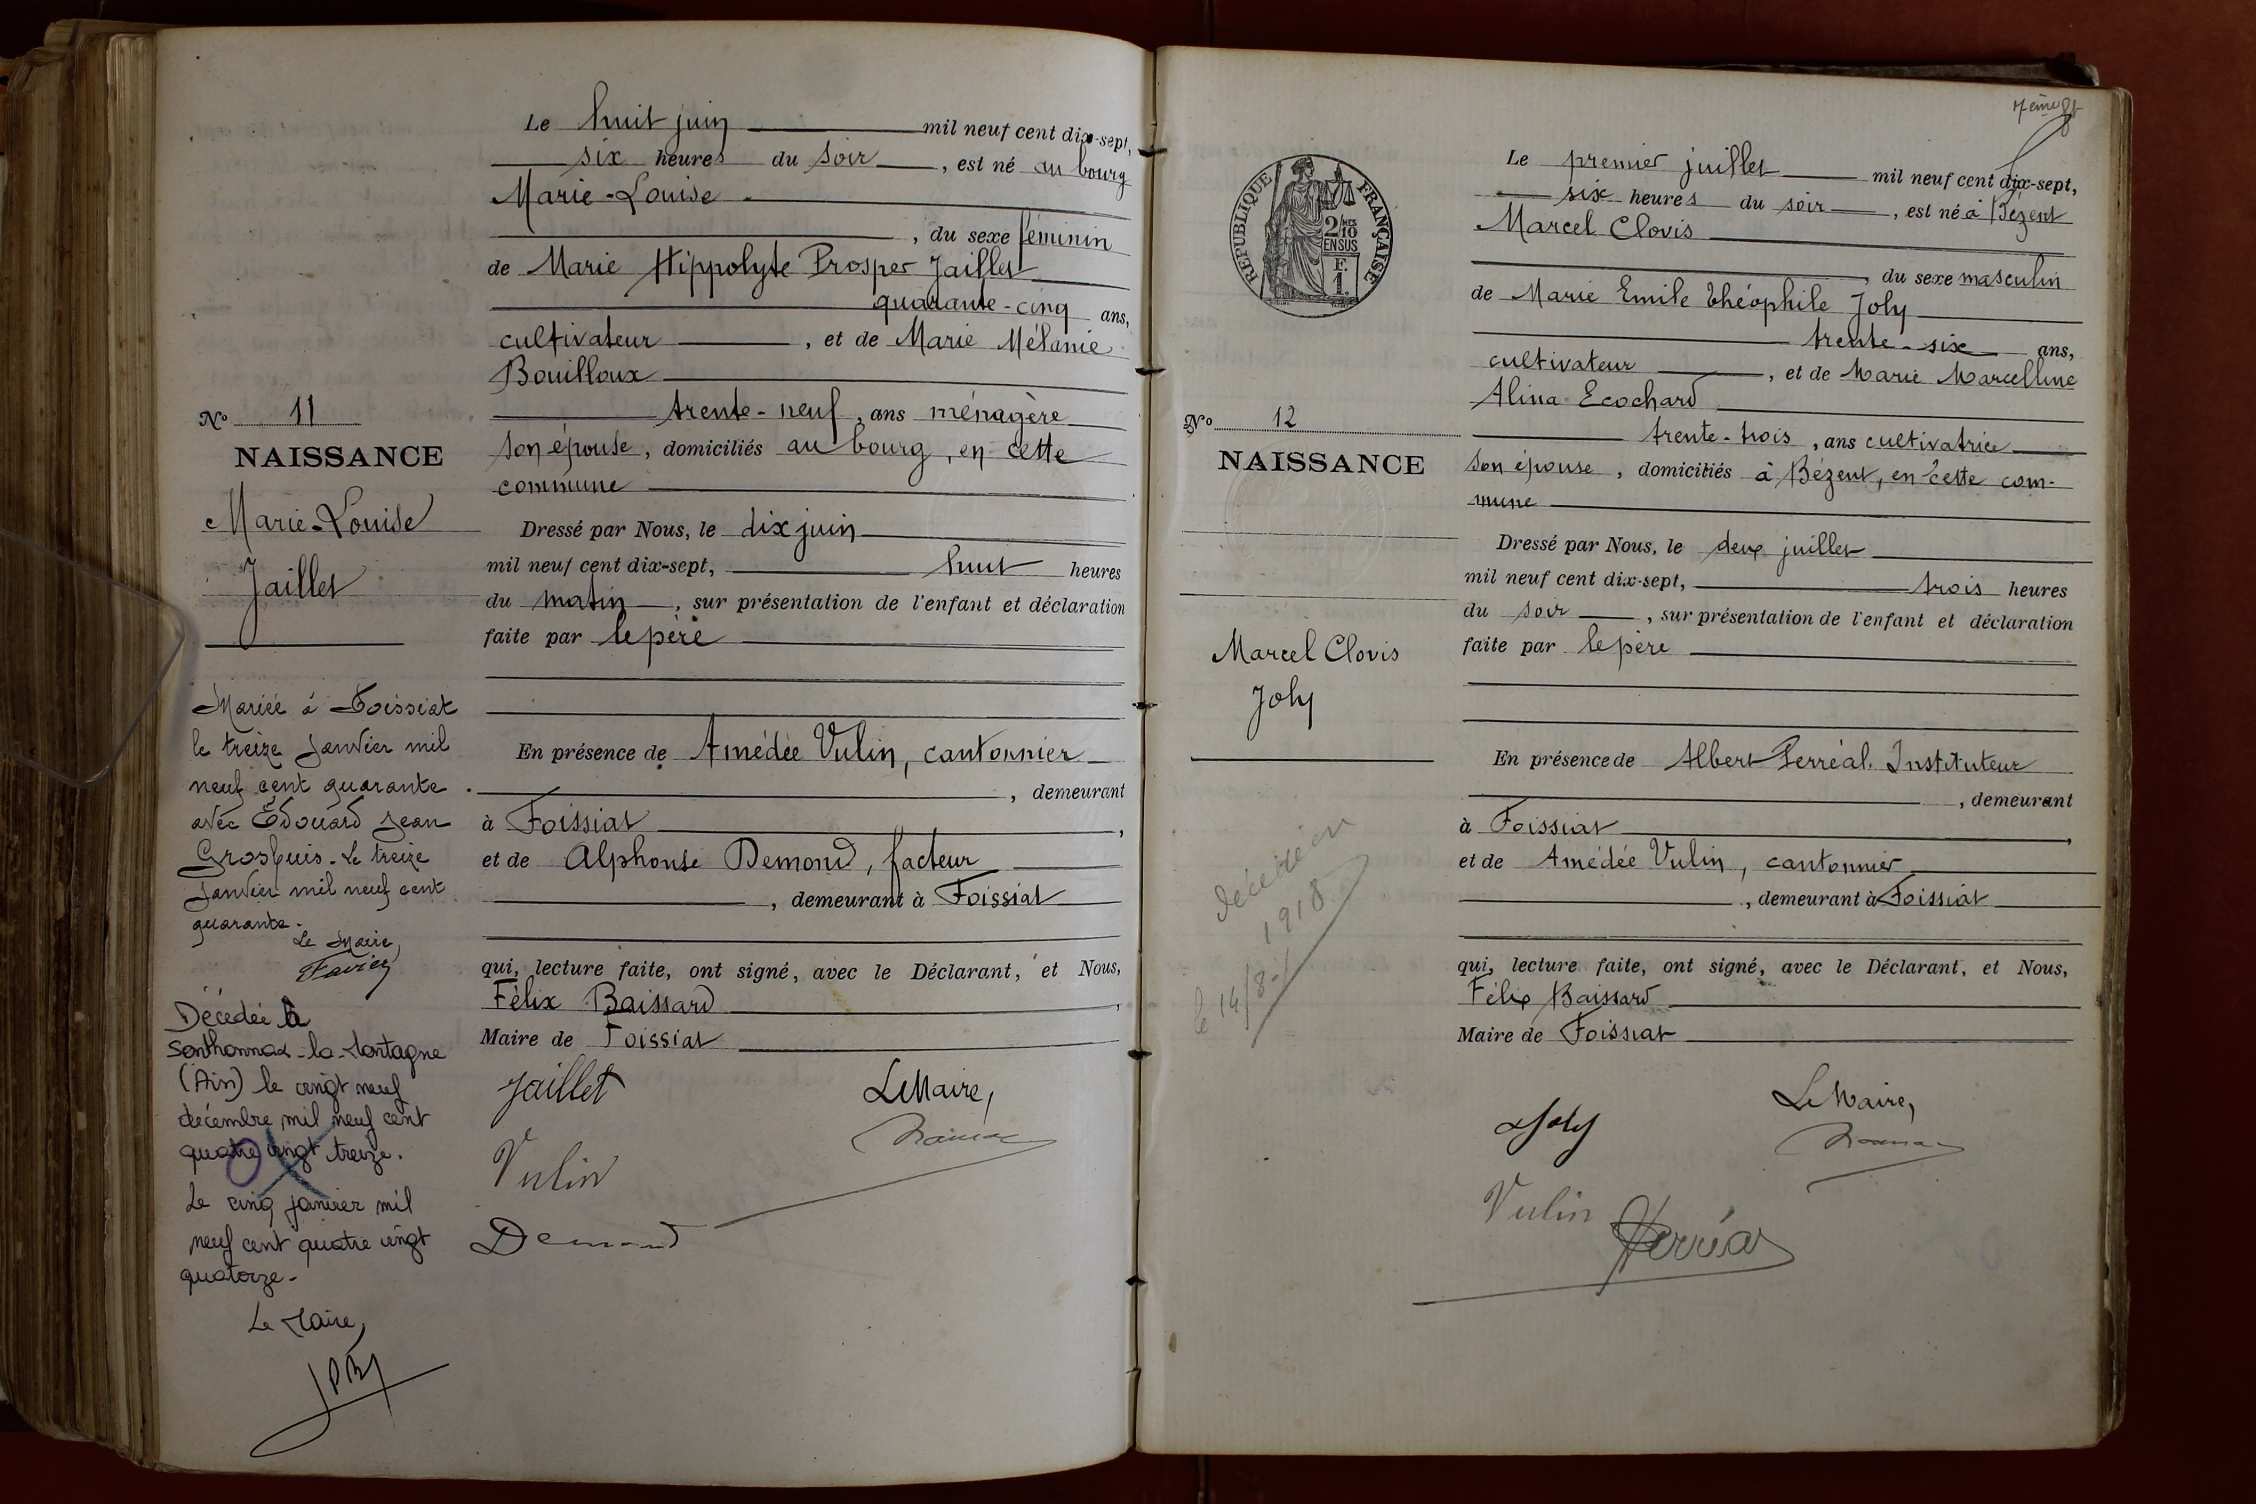 Le huit juin mil neuf cent dix-sept,
six heures du soir, est né au bourg
Marie-Louise
, du sexe féminin
de Marie Hippolyte Prosper Jaillet
quarante-cinq ans,
cultivateur, et de Marie Mélanie
Bouilloux
trente-neuf, ans ménagère
son épouse, domiciliés au bourg, en cette
commune
No 11
NAISSANCE
Marie-Louise
Jaillet
Dressé par Nous, le dix juin
mil neuf cent dix-sept, huit heures
du matin, sur présentation de l'enfant et déclaration
faite par le père
En présence de Amédée Vulin, cantonnier
, demeurant
à Foissiat,
et de Alphonse Demond, facteur
, demeurant à Foissiat
qui, lecture faite, ont signé, avec le Déclarant, et Nous,
Félix Baissard,
Maire de Foissiat
Jaillet
Le Maire,
Vulin
Demond
Mariée à Foissiat
le treize Janvier mil
neuf cent quarante
avec Edouard Jean
Grosfuis. Le treize
Janvier mil neuf cent
quarante.
Le Maire,
Favier
Décédée à
Sonthonnax-la-Montagne
(Ain) le vingt neuf
décembre mil neuf cent
quatre vingt treize.
Le cinq janvier mil
neuf cent quatre vingt
quatorze-
Le Maire,
7ème ft
RÉPUBLIQUE FRANÇAISE
2/10
EN SUS
F.
1.
Le premier juillet mil neuf cent dix-sept,
six heures du soir, est né à Bézent
Marcel Clovis
, du sexe masculin
de Marie Emile Théophile Joly
trente-six ans,
cultivateur, et de Marie Marcelline
Alina Ecochard
trente-trois, ans cultivatrice
son épouse, domiciliés à Bézent, en cette com-
mune
No 12
NAISSANCE
Marcel Clovis
Joly
Dressé par Nous, le deux juillet
mil neuf cent dix-sept, trois heures
du soir, sur présentation de l'enfant et déclaration
faite par le père
En présence de Albert Ferréal. Instituteur
, demeurant
à Foissiat,
et de Amédée Vulin, cantonnier
, demeurant à Foissiat
qui, lecture faite, ont signé, avec le Déclarant, et Nous,
Félix Baissard
Maire de Foissiat
Joly
Le Maire,
Vulin
Ferréal
1918
le 14/8